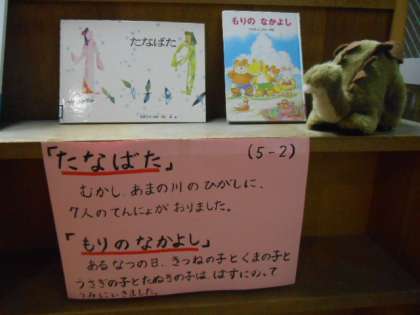 たなばた
もりの なかよし
「たなばた」
(5-2)
むかし、あまの川の ひがしに、
7人の てんにょが おりました。
「もりの なかよし」
ある なつの日、きつねの子と くまの子と
うさぎの子と たぬきの子は、 ばすにのって
うみにいきました。